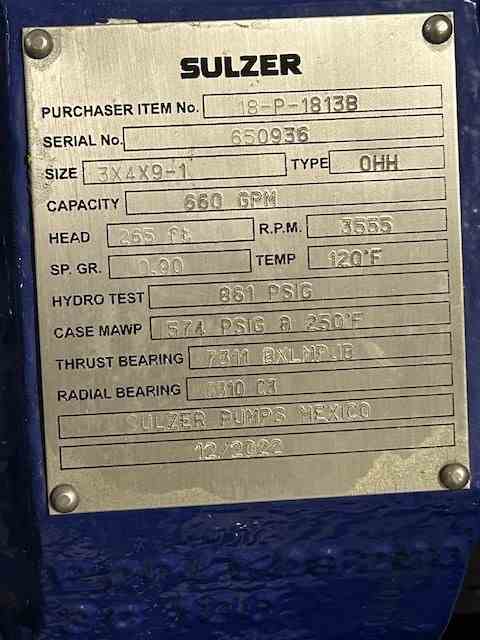 SULZER
PURCHASER ITEM No. 18-P-1813B
SERIAL No. 650936
SIZE 3X4X9-1 TYPE OHH
CAPACITY 660 GPM
HEAD 265 ft R.P.M. 3555
SP. GR. 0.90 TEMP 120°F
HYDRO TEST 861 PSIG
CASE MAWP 574 PSIG @ 250°F
THRUST BEARING 7311
RADIAL BEARING 6310 C3
SULZER PUMPS MEXICO
12/2022